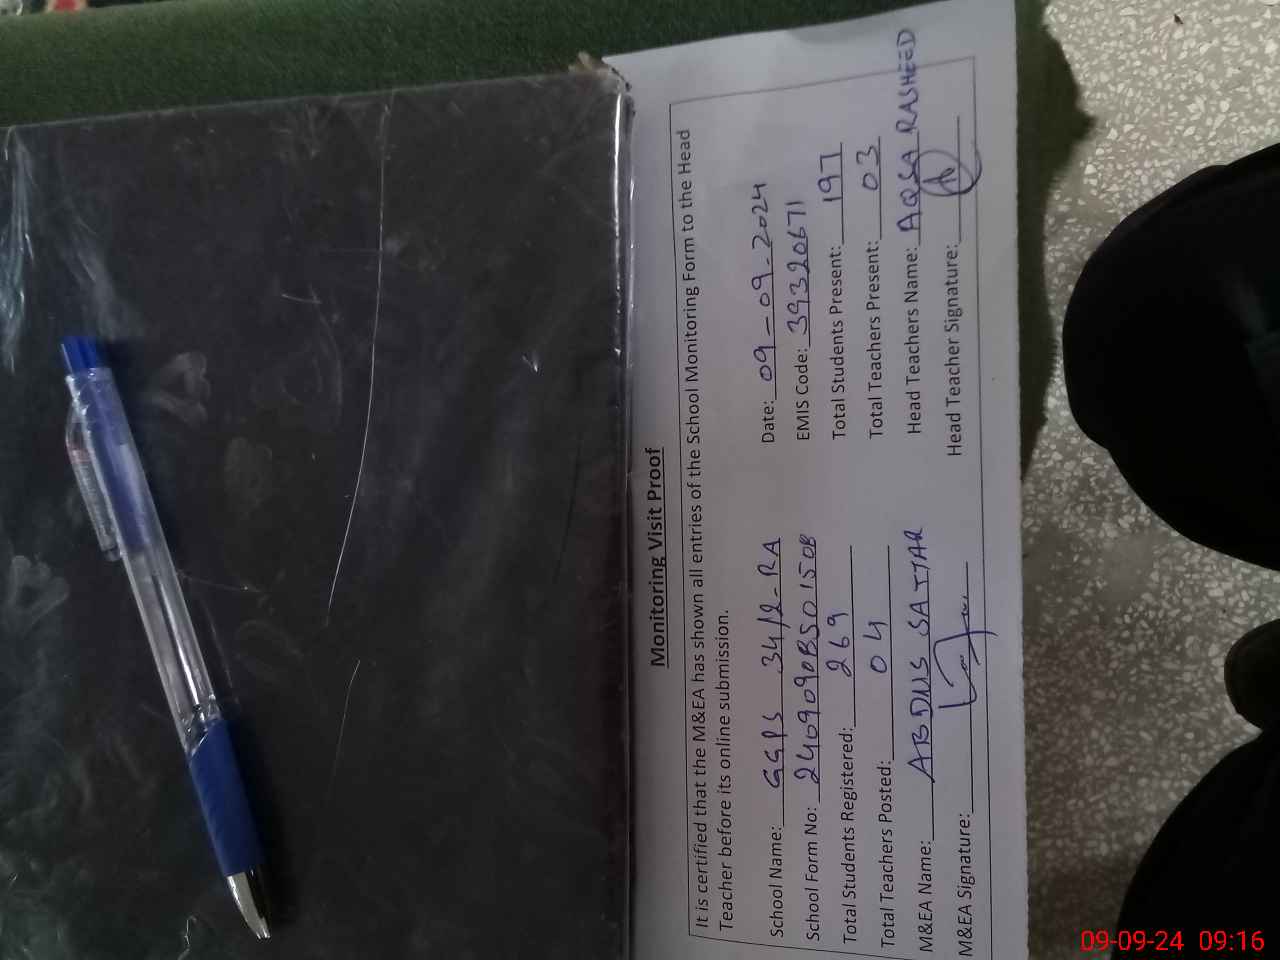 Monitoring Visit Proof
It is certified that the M&EA has shown all entries of the School Monitoring Form to the Head
Teacher before its online submission.
School Name: GGPS 34/2-RA Date: 09-09-2024
School Form No: 240909OBSO150B EMIS Code: 39320671
Total Students Registered: 269 Total Students Present: 197
Total Teachers Posted: 04 Total Teachers Present: 03
M&EA Name: ABDNS SATTAR Head Teachers Name: AQSA RASHEED
M&EA Signature: Head Teacher Signature:
09-09-24 09:16